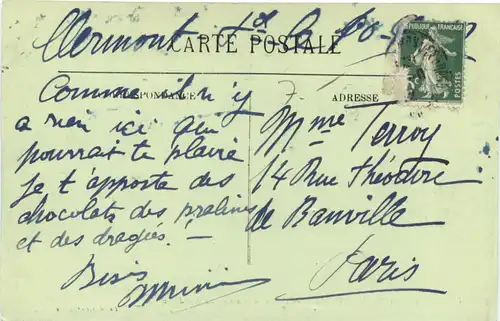 Clermont Fd le
CARTE POSTALE
RÉPUBLIQUE FRANÇAISE
POSTES
ADRESSE
Comme il n'y
a rien ici qui
pourrait te plaire
je t'apporte des
chocolats des pralines
et des dragées! —
Bises
Mimi
Mme Terroy
14 Rue Théodore
de Banville
Paris